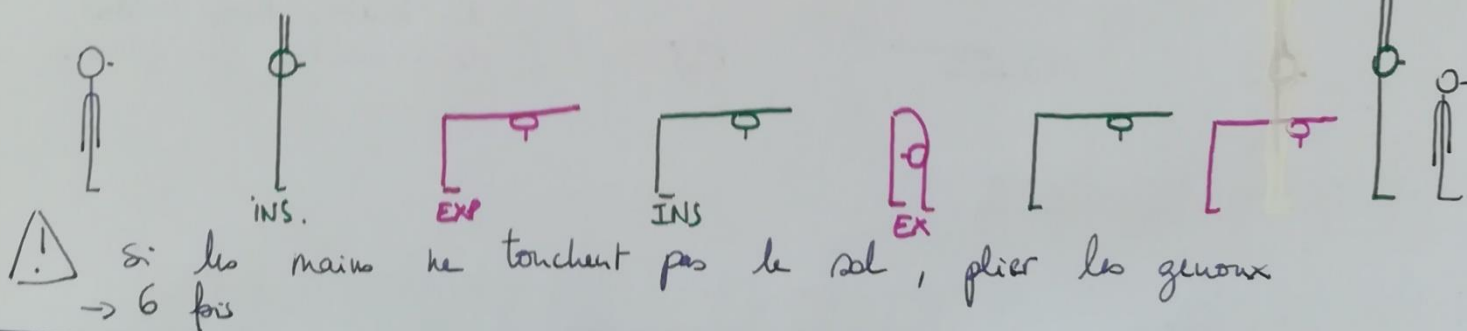 iNS. EXP INS EX
! si les mains ne touchent pas le sol, plier les genoux
-> 6 fois